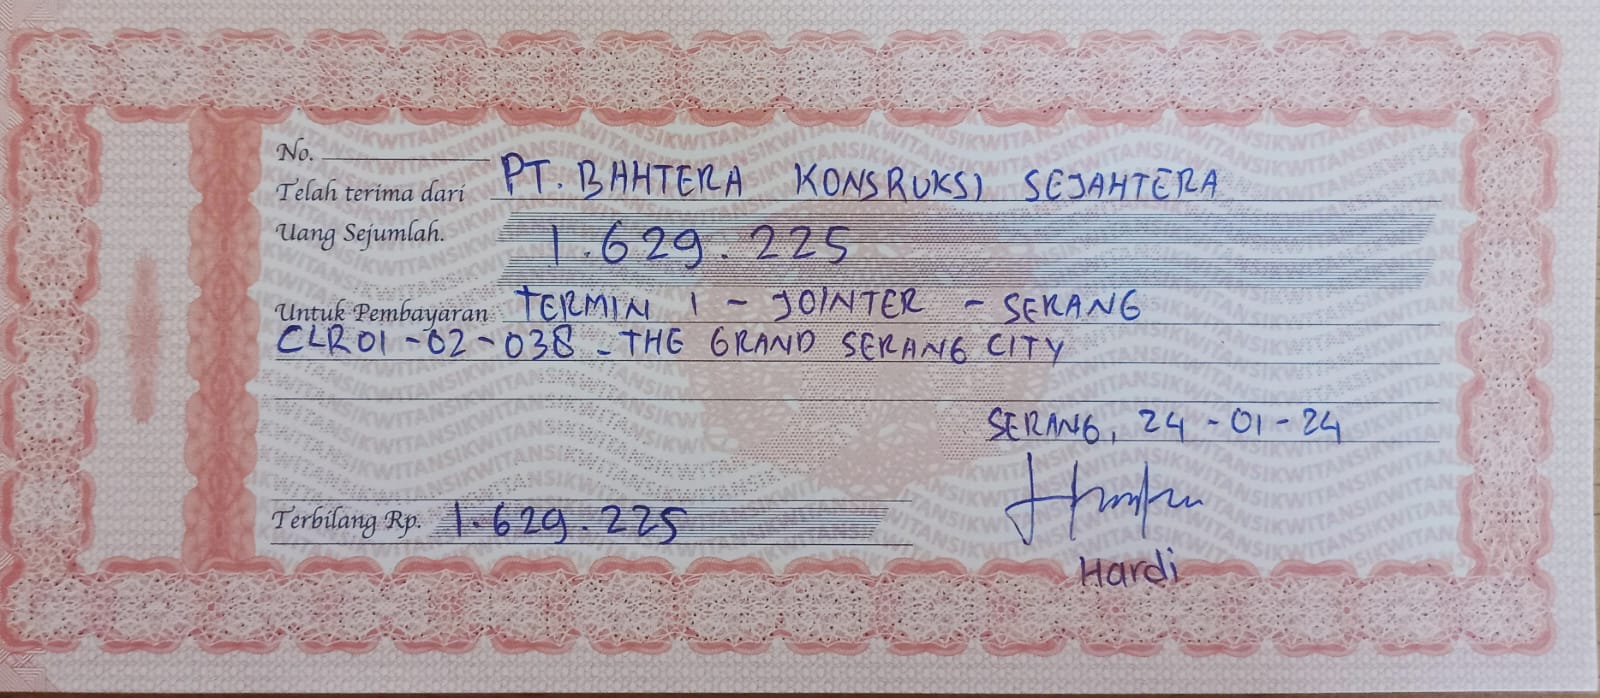 No.
Telah terima dari PT. BAHTERA KONSRUKSI SEJAHTERA
Uang Sejumlah. 1.629.225
Untuk Pembayaran TERMIN 1 - JOINTER - SERANG
CLR01-02-038 - THE GRAND SERANG CITY
SERANG, 24-01-24
Terbilang Rp. 1.629.225
Hardi